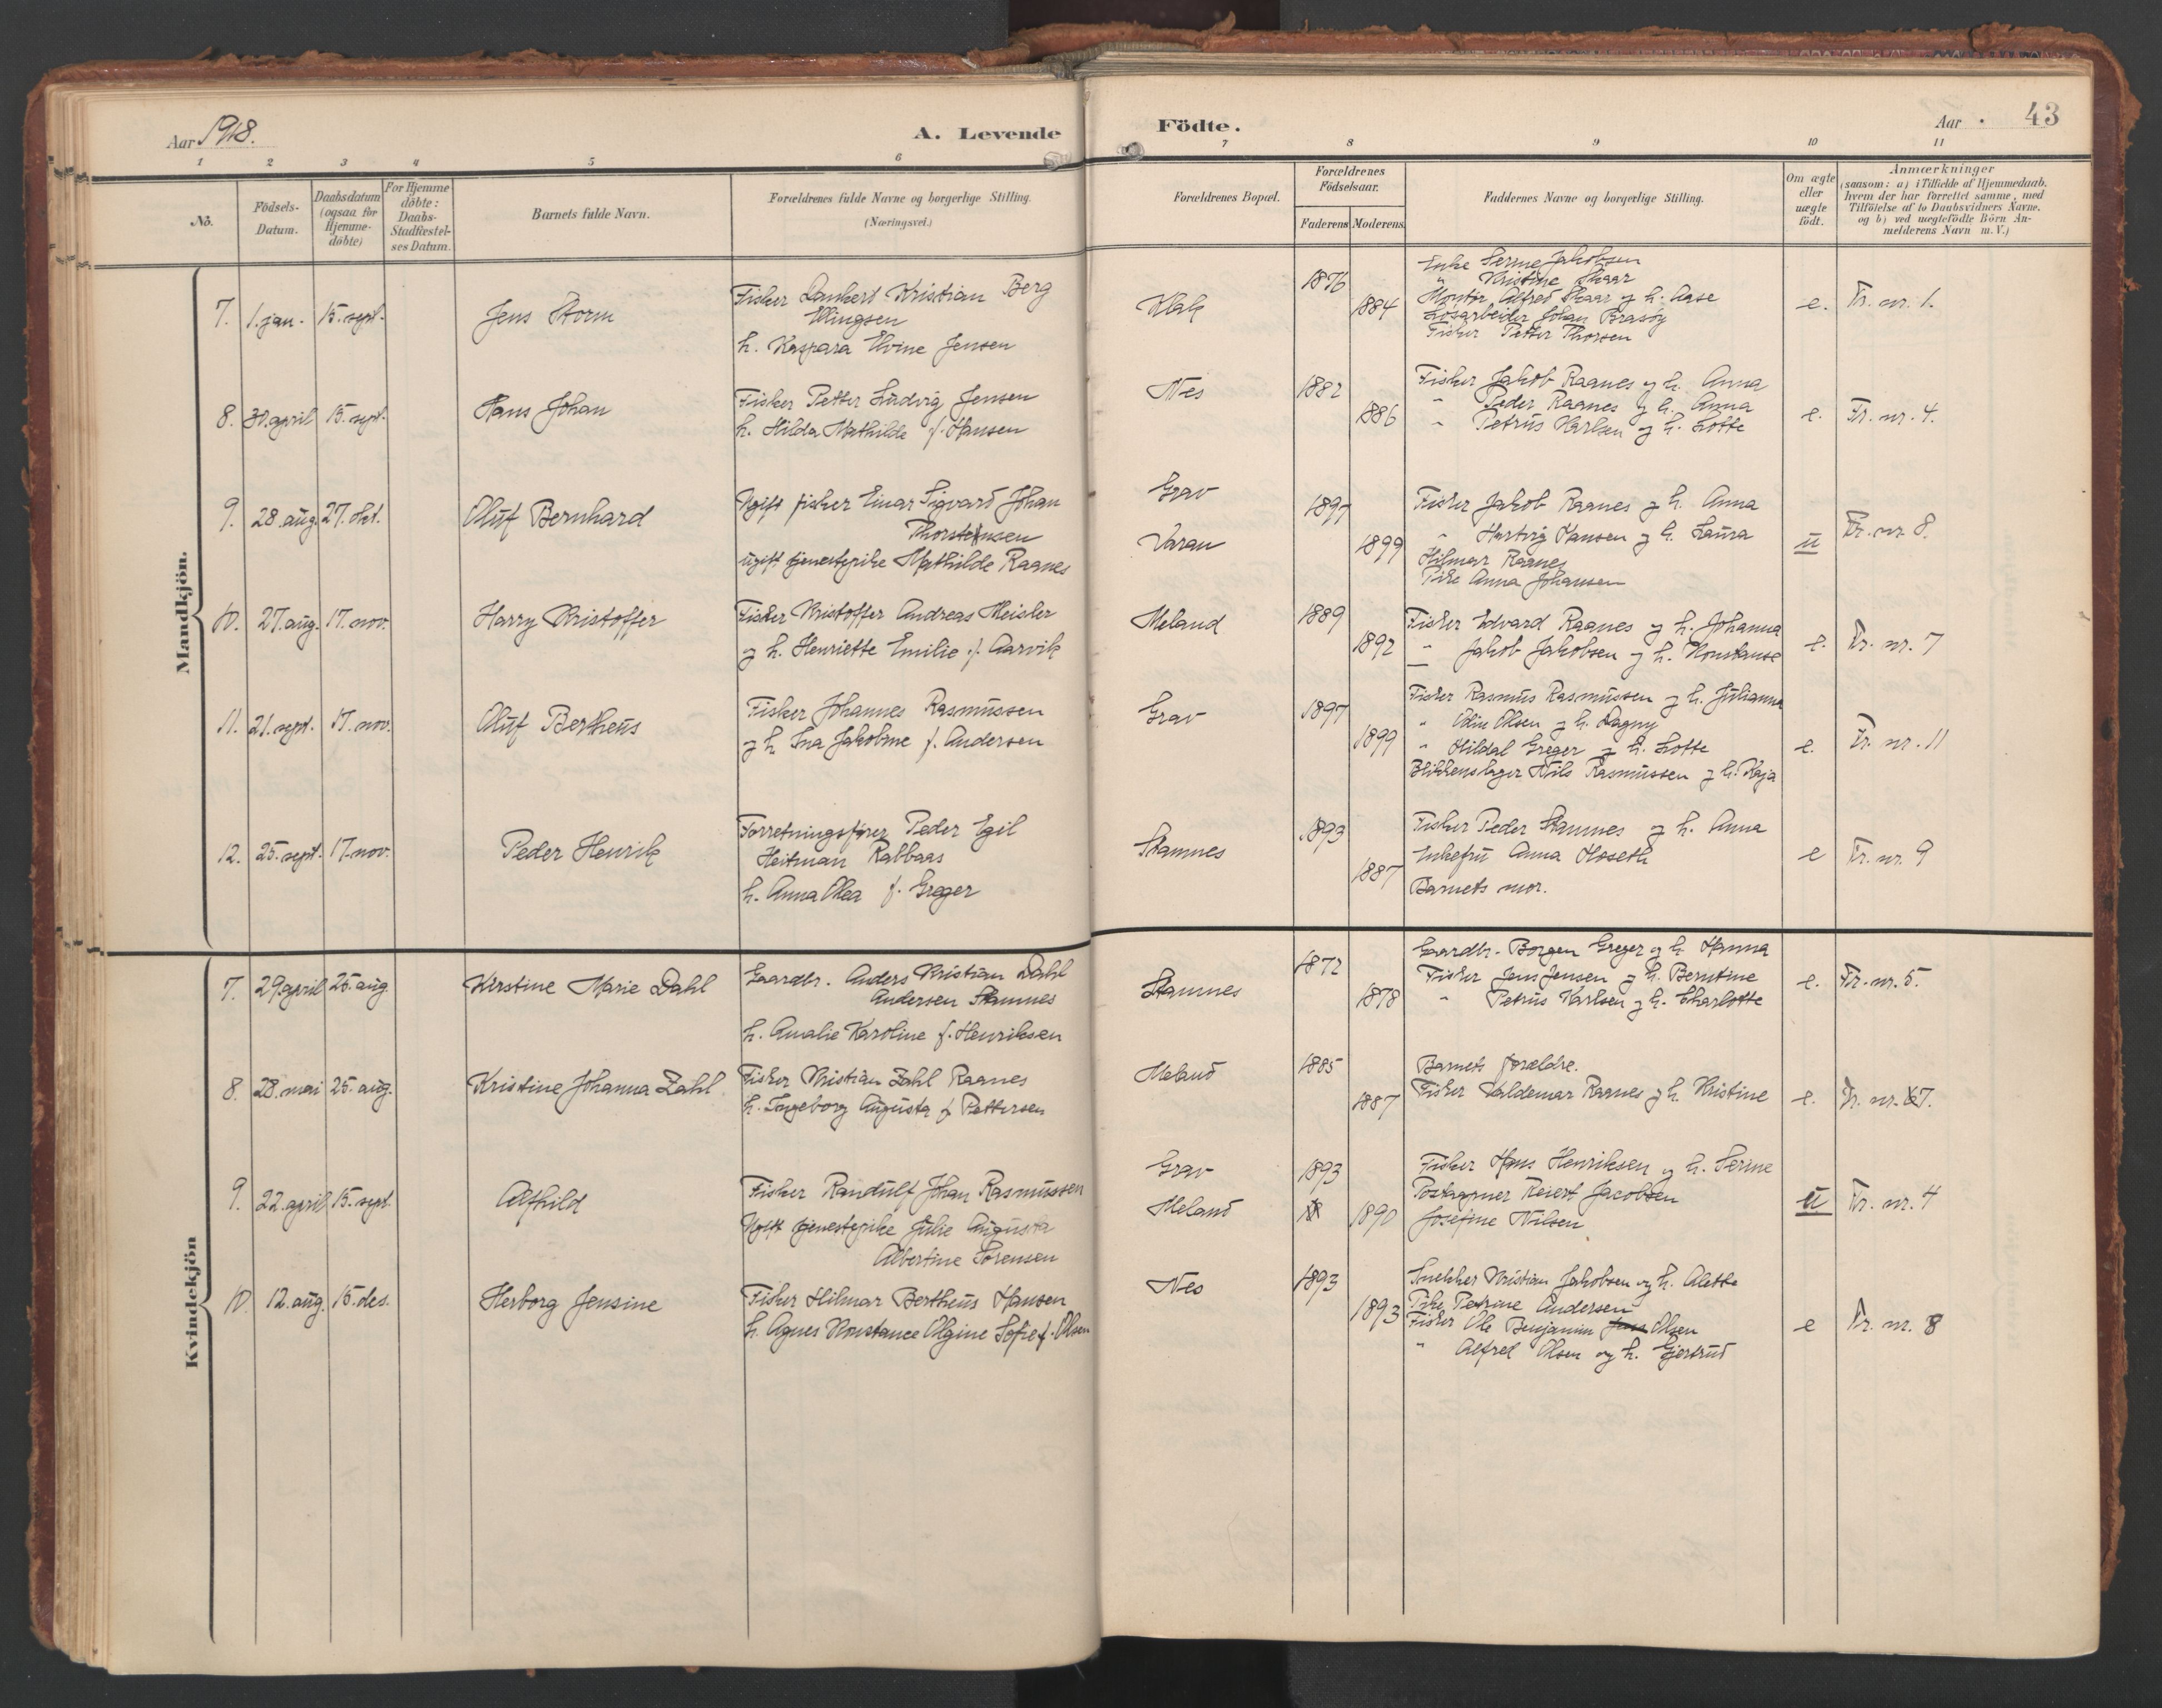 Aar 1918.
A. Levende
Födte.
Aar
43
1 2 3 4 5 6 7 8 9 10 11
Nô.
Födsels-
Datum.
Daabsdatum
(ogsaa for
Hjemme-
döbte)
For Hjemme
döbte:
Daabs-
Stadfæstel-
ses Datum.
Barnets fulde Navn.
Forældrenes fulde Navne og borgerlige Stilling.
(Næringsvei.)
Forældrenes Bopæl.
Forældrenes
Födselsaar.
Faderens
Moderens
Faddernes Navne og borgerlige Stilling.
Om ægte
eller
uægte
födt.
Anmærkninger
(saasom: a) i Tilfælde af Hjemmedaab.
hvem der har forrettet samme, med
Tilföielse af to Daabsvidners Navne.
og b) ved uegtefödte Börn An-
melderens Navn m.V.)
Mandkjön.
7. 1. jan. 15. sept. Jens Storm
Fisker Lankert Kristian Berg
Ellingsen
h. Kaspara Elvine Jensen
Klak
1876
1884
Enke Serine Jakobsen
" Kristine Skaar
Montör Alfred Skaar og h. Aase
Lösarbeider Johan Brasöy
Fisker Petter Thorsen
e. Fr. nr. 1.
8. 30. april 15. sept. Hans Johan
Fisker Petter Ludvig Jensen
h. Hilda Mathilde f. Hansen
Nes
1882
1886
Fisker Jakob Raanes og h. Anna
" Peder Raanes og h. Anna
" Petrus Karlsen og h. Lotte
e. Fr. nr. 4.
9. 28. aug. 27. okt. Oluf Bernhard
Ugift fisker Einar Sigvard Johan
Thorstensen
ugift tjenestepike Mathilde Raanes
Grav
Varan
1897
1899
Fisker Jakob Raanes og h. Anna
" Hartvig Hansen og h. Laura
Hilmar Raanes
Pike Anna Johansen
u Fr. nr. 8.
10. 27. aug. 17. nov. Harry Kristoffer
Fisker Kristoffer Andreas Meisler
og h. Henriette Emilie f. Aarvik
Meland
1889
1892
Fisker Edvard Raanes og h. Johanna
" Jakob Jakobsen og h. Konstanse
e. Fr. nr. 7
11. 21. sept. 17. nov. Oluf Bertheus
Fisker Johannes Rasmussen
og h. Ina Jakobine f. Andersen
Grav
1897
1899
Fisker Rasmus Rasmussen og h. Julianna
" Odin Olsen og h. Dagny
" Hildal Greger og h. Lotte
Blikkenslager Nils Rasmussen og h. Kaja
e. Fr. nr. 11
12. 25. sept. 17. nov. Peder Henrik
Forretningsfører Peder Egil
Heitman Rabbaas
h. Anna Olea f. Greger
Stamnes
1893
1887
Fisker Peder Stamnes og h. Anna
Enkefru Anna Hoseth
Barnets mor.
e Fr. nr. 9
Kvindekjön
7. 29 april 25. aug. Kirstine Marie Dahl
Gaardbr. Anders Kristian Dahl
Andersen Stamnes
h. Amalie Karoline f. Henriksen
Stamnes
1872
1878
Gaardbr. Borgen Greger og h. Hanna
Fisker Jens Jensen og h. Berntine
" Petrus Karlsen og h. Charlotte
e. Fr. nr. 5.
8. 28. mai 25. aug. Kristine Johanna Zahl
Fisker Kristian Zahl Raanes
h. Ingeborg Augusta f. Pettersen
Meland
1885
1887
Barnets forældre.
Fisker Valdemar Raanes og h. Kristine
e. Fr. nr. 7.
9. 22. april 15. sept. Alfhild
Fisker Randulf Johan Rasmussen
Ugift tjenestepike Julie Augusta
Albertine Sørensen
Grav
Meland
1893
1890
Fisker Hans Henriksen og h. Serine
Postaapner Reiert Jacobsen
Josefine Nilsen
u Fr. nr. 4
10. 12. aug. 15. des. Herborg Jensine
Fisker Hilmar Bertheus Hansen
h. Agnes Konstance Olgine Sofie f. Olsen
Nes
1893
1893
Snekker Kristian Jakobsen og h. Alette
Pike Petrine Andersen
Fisker Ole Benjamin Olsen
" Alfred Olsen og h. Gjertrud
e Fr. nr. 8